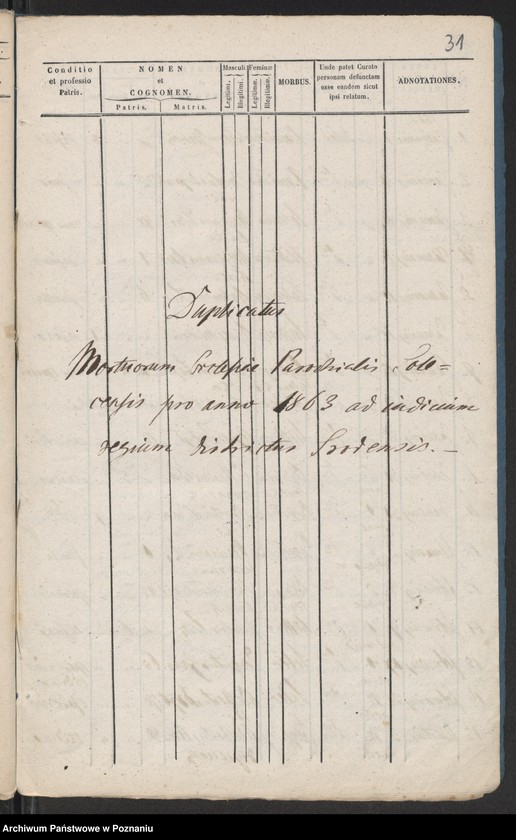 31
Conditio
et professio
Patris.
NOMEN
et
COGNOMEN.
Patris. Matris.
Masculi Feminae
Legitimi. Illegitimi. Legitimae. Illegitimae.
MORBUS.
Unde patet Curato
personam defunctam
esse eandem sicut
ipsi relatum.
ADNOTATIONES.
Duplicatus
Mortuorum Ecclesiae Parochialis
pro anno 1863 ad iudicium
regium districtus Srodensis. –
Archiwum Państwowe w Poznaniu